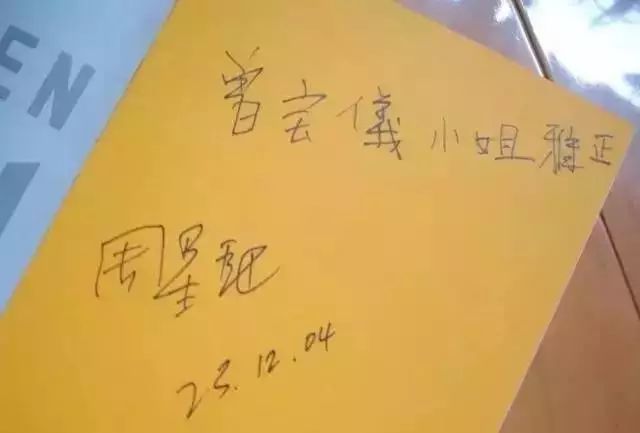 EN
曾宝儀小姐雅正
周星馳
23.12.04